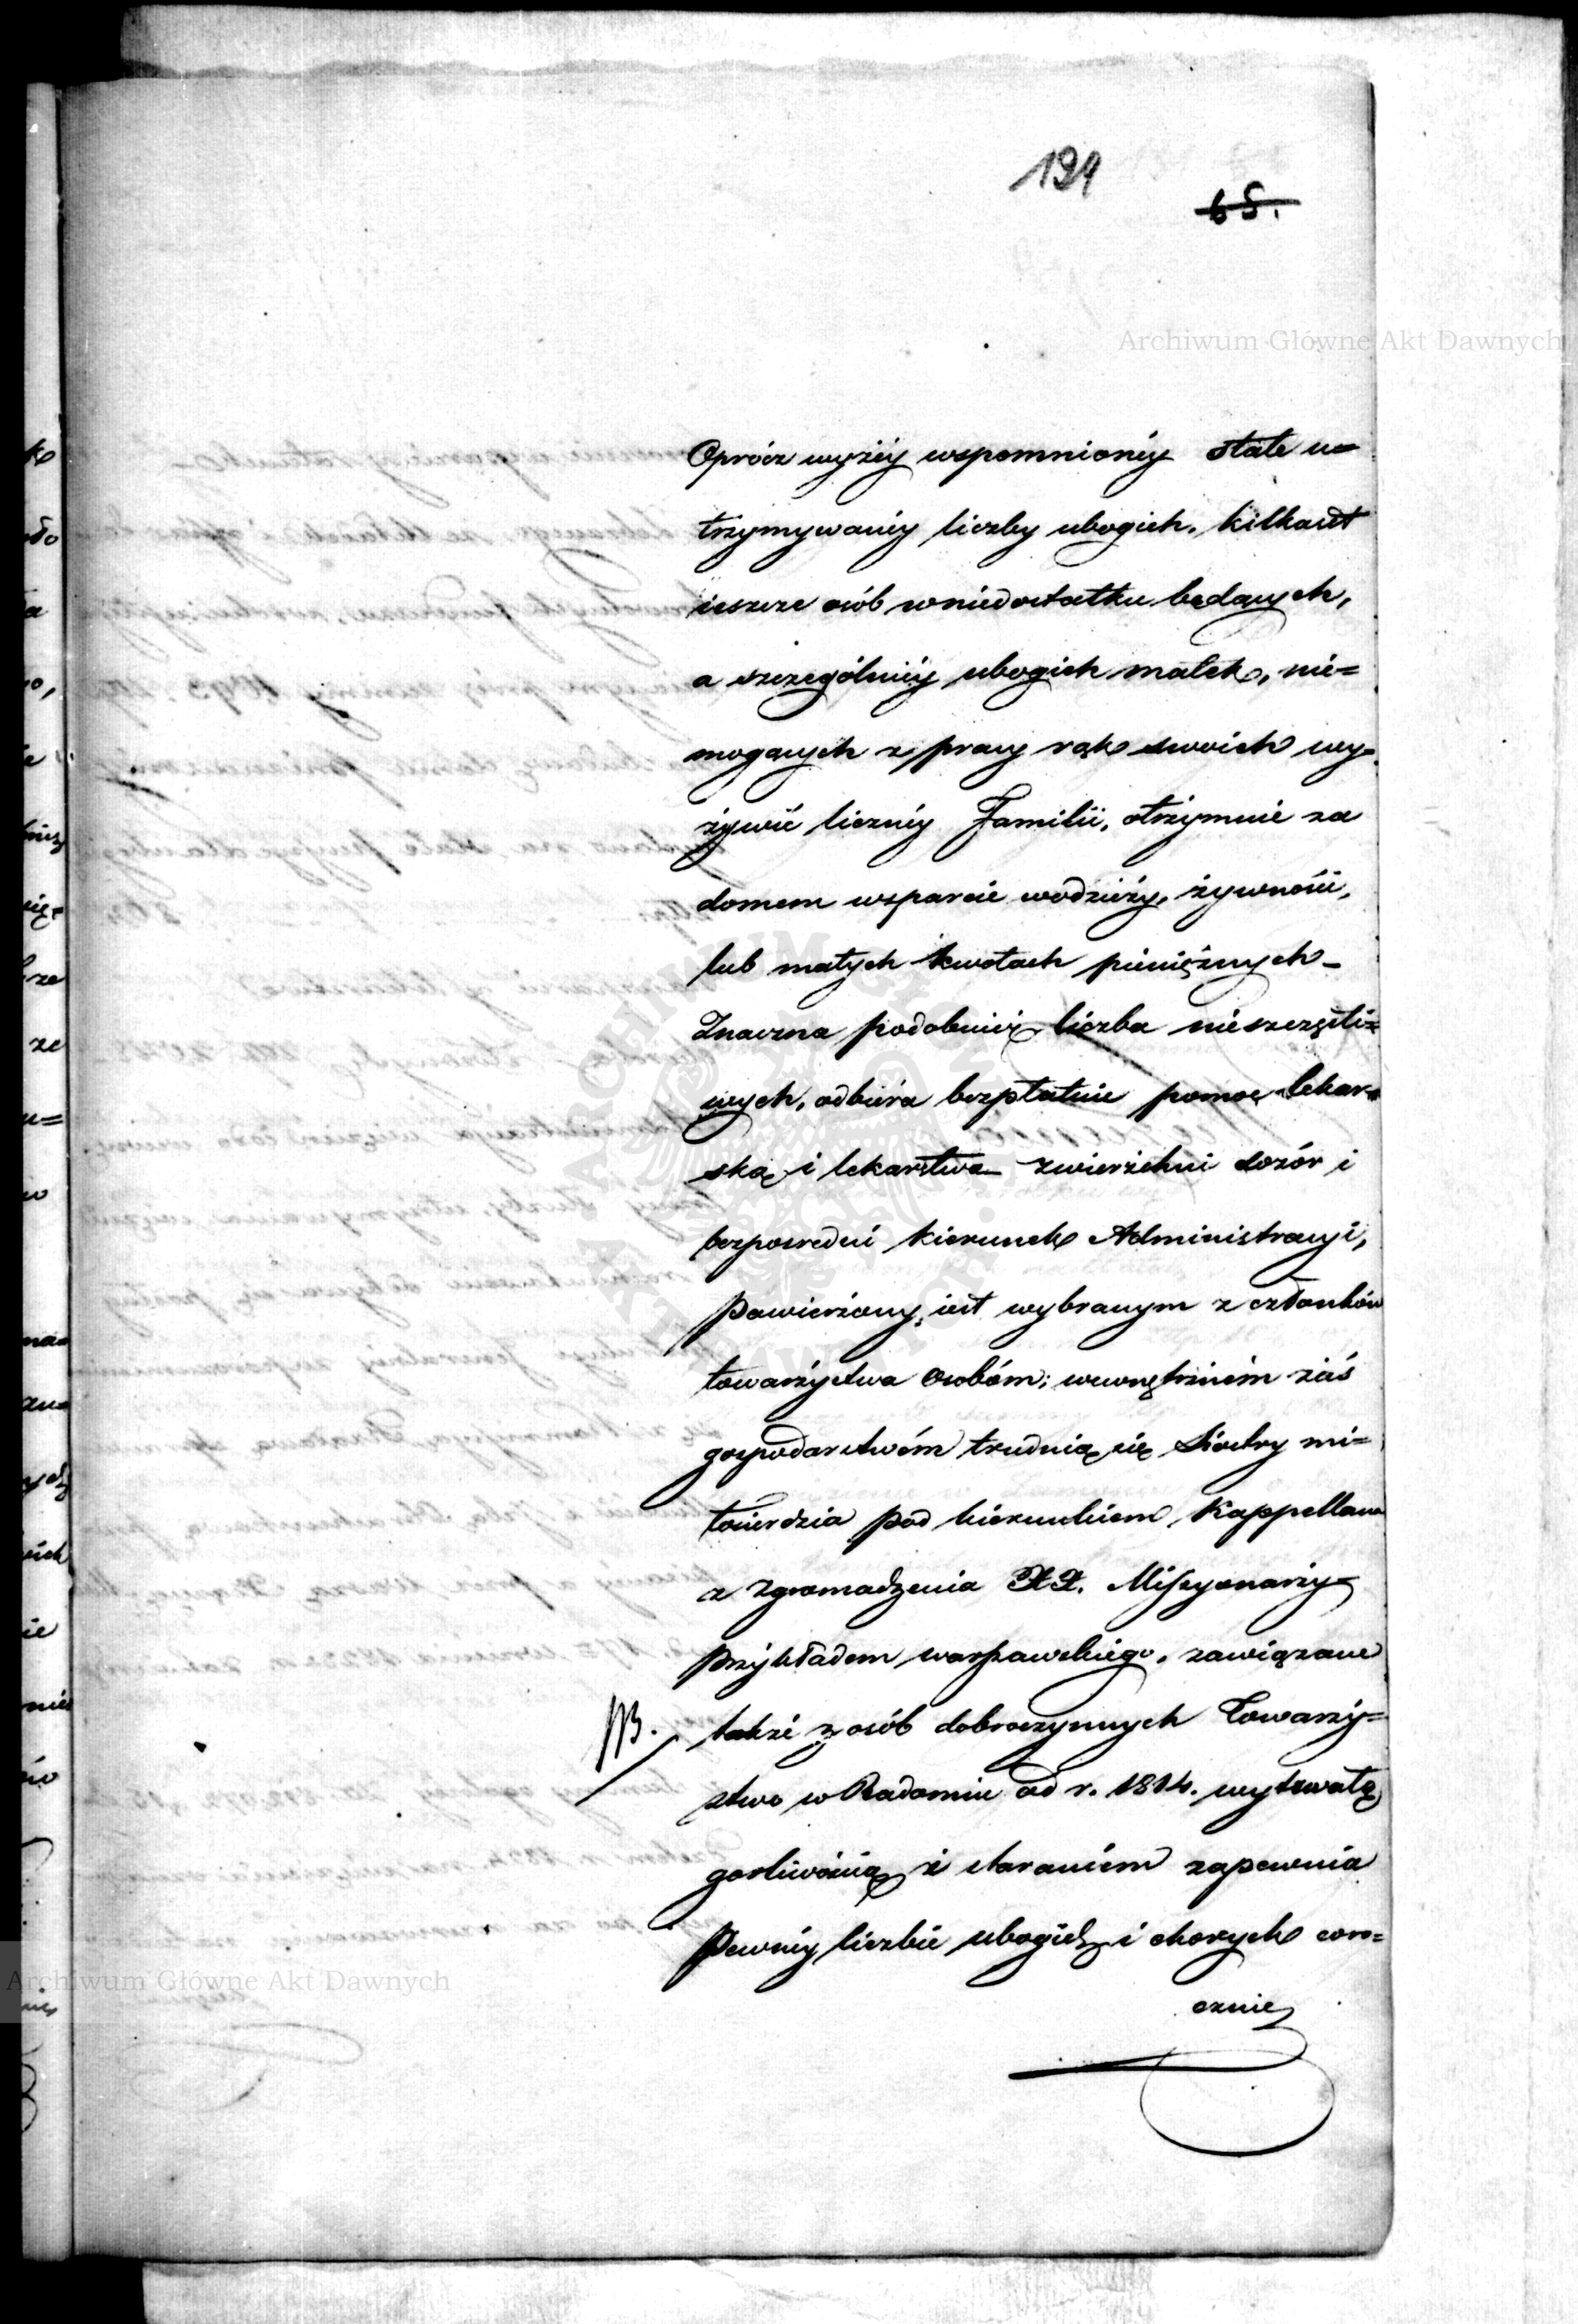 194
65.
Archiwum Główne Akt Dawnych
Oprócz wyżéy wspomnionéy stale u=
trzymywanéy liczby ubogich, kilkaset
ieszcze osób w niedostatku będących,
a szczególniéy ubogich matek, nie=
mogących z pracy rąk swoich wy=
żywić licznéy Familii, otrzymuie za
domem wsparcie w odzieży, żywności,
lub małych kwotach pieniężnych_
Znaczna podobnież liczba nieszczęśli=
wych, odbiéra bezpłatnie pomoc lekar=
ską i lekarstwa_ zwierzchni dozór i
bezpośredni kierunek Administracyi,
powierzony iest wybranym z członków
towarzystwa Osobóm; wewnętrzném zaś
gospodarstwém trudnią się Siostry mi=
łosierdzia pod kierunkiem Kappellana
z Zgromadzenia XX. Missyonarzy
przykładem warszawskiego, zawiązane
NB. także z osób dobroczynnych Towarzy=
stwo w Radomiu od r. 1814. wytrwałą
gorliwością i staraniem zapewnia
pewnéy liczbie ubogich i chorych coro=
cznie
Archiwum Główne Akt Dawnych